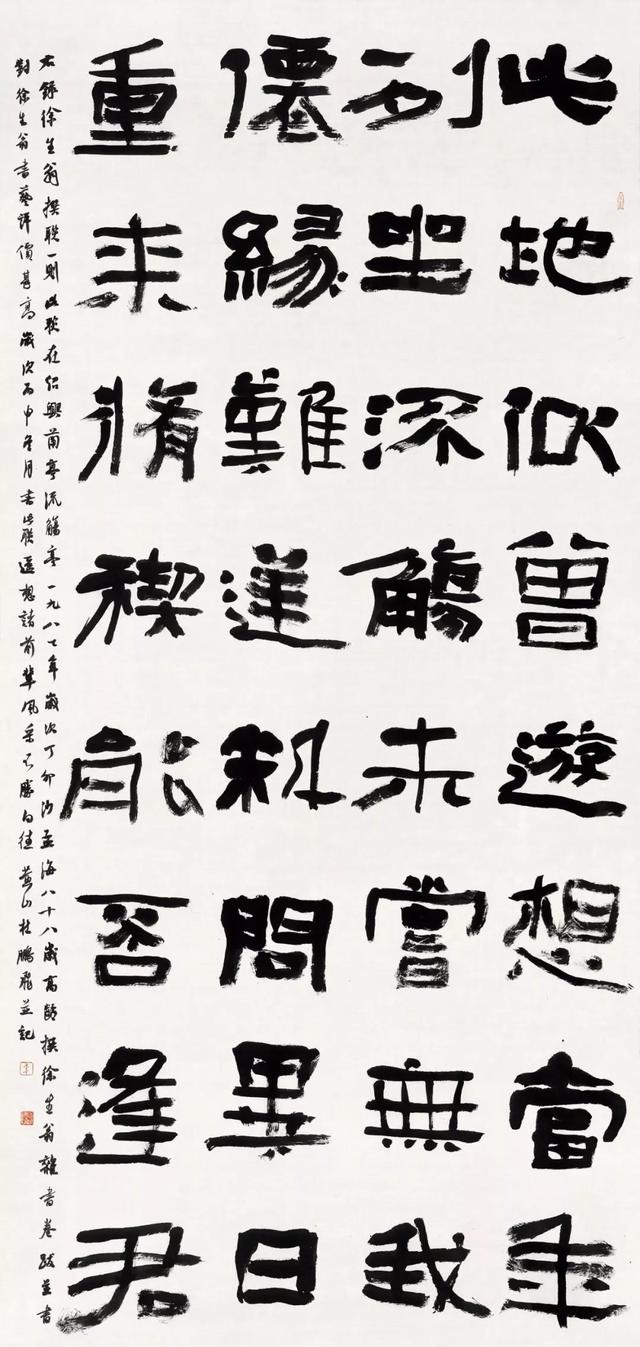 此地似曾遊想當年
列坐流觴未嘗無我
僊緣難逆料問異日
重來脩禊能否逢君
右錄徐生翁撰聯一則此聯在紹興蘭亭流觴亭一九八七年歲次丁卯沙孟海八十八歲高齡撰徐生翁雜書卷跋並書
對徐生翁書藝評價甚高歲次丙申冬月書此聯遙想諸前輩風采不勝向往黃山杜鵬飛並記